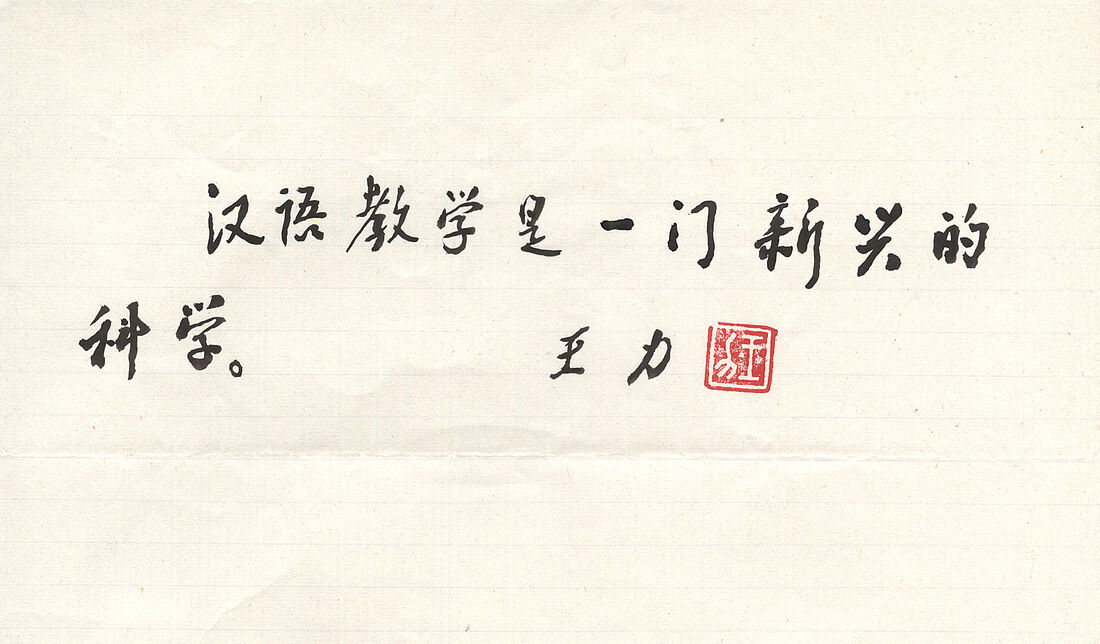 汉语教学是一门新兴的
科学。
王力
王力